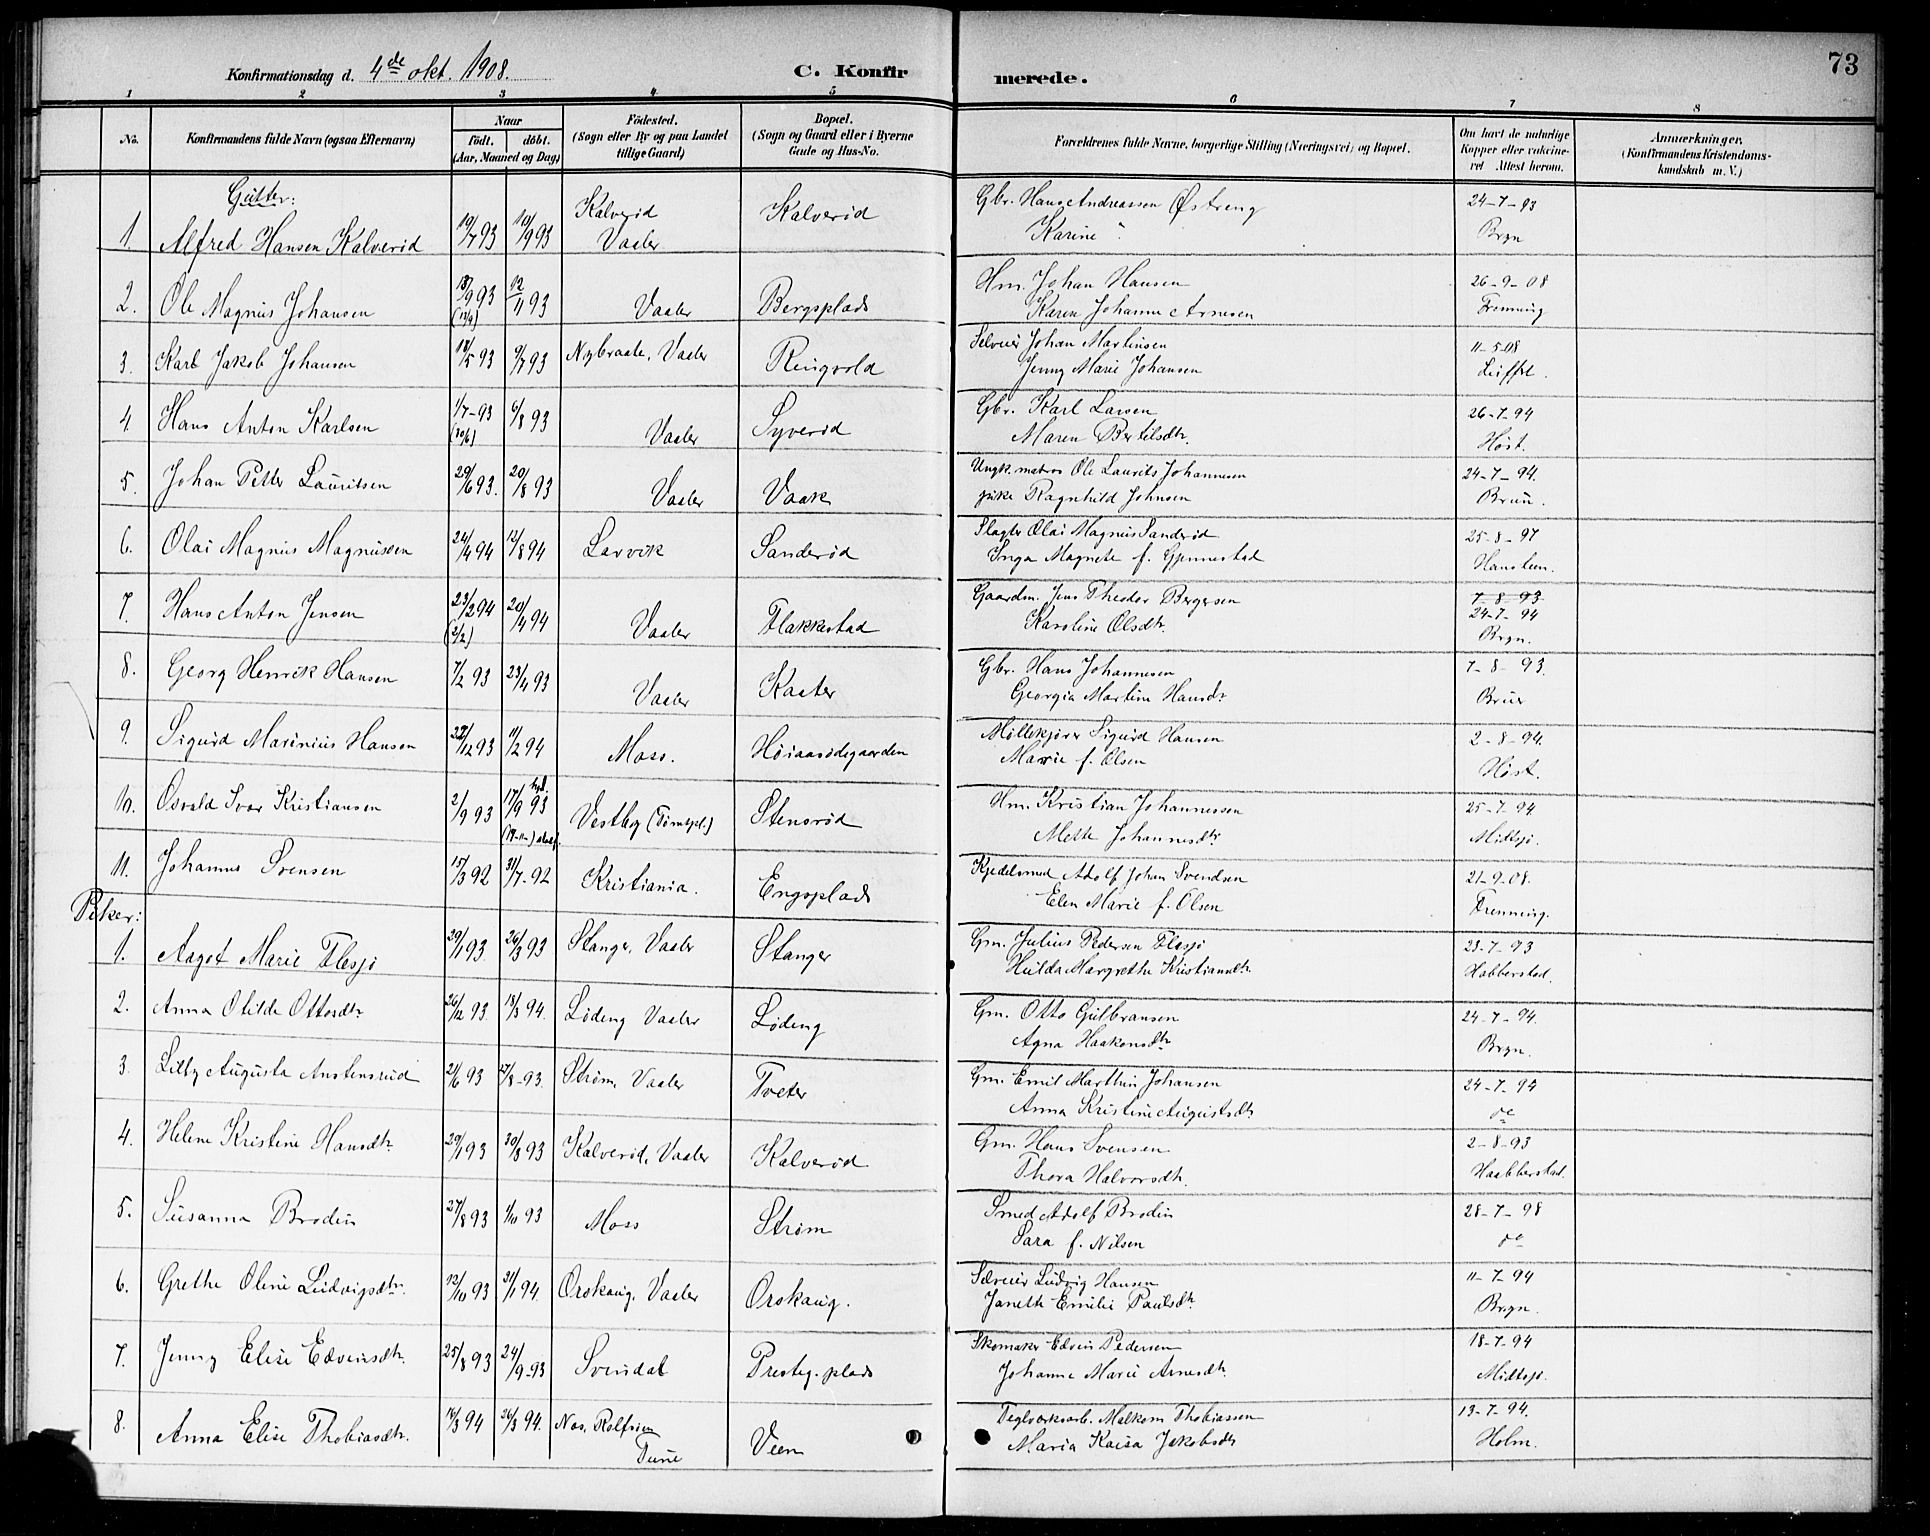 Konfirmationsdag d. 4de okt. 1908. C. Konfirmerede. 73
1 2 3 4 5 6 7 8
No. Konfirmandens fulde Navn (ogsaa Efternavn) Naar født. døbt. (Aar, Maaned og Dag) Födested. (Sogn eller By og paa Landet tillige Gaard) Bopæl. (Sogn og Gaard eller i Byerne Gade og Hus-No. Forældrenes fulde Navne, borgerlige Stilling (Næringsvei) og Bopæl. Om havt de naturlige Kopper eller vaccineret Attest herom. Anmærkninger. (Konfirmandens Kristendomskundskab m. V.)
Gutter:
1. Alfred Hansen Kalverød 19/7 93 10/9 93 Kalverød Vaaler Kalverød Gbr. Hans Andreassen Østreng 24-7-93
Karine " Bryn
2. Ole Magnus Johansen 18/9 93 (12/9) 12/11 93 Vaaler Bergsplads Hm. Johan Hansen 26-9-08
Karen Johanne Arnesen Frenning
3. Karl Jakob Johansen 18/5 93 9/7 93 Nybraate, Vaaler Ringvold Selveier Johan Martinsen 11-5-08
Jenny Marie Johansen
4 Hans Anton Karlsen 1/7-93 (30/6) 6/8 93 Vaaler Syverød Gbr. Karl Larsen 26-7-94
Maren Bertilsdtr. Høst.
5. Johan Petter Lauritsen 29/6 93. 20/8 93 Vaaler Vaak Ungk. matros Ole Laurits Johannesen 24-7-94.
pike Ragnhild Johnsen Bruu.
6. Olai Magnus Magnussen 24/4 94 12/8 94 Larvik Sanderød Slagter Olai Magnus Sanderød 25-8-97
Inga Magnete f. Gjennestad Hansteen.
7. Hans Anton Jensen 23/2 94 (2/2) 20/4 94 Vaaler Flakkestad Gaardm. Jens Theodor Bergersen 7-8-93
Karoline Olsdtr. 24-7-94
Bryn.
8. Georg Henrik Hansen 7/2 93 23/4 93 Vaaler Kaater Gbr. Hans Johannesen 7-8-93.
Georgia Martine Hansdtr
9. Sigurd Marinius Hansen 22/12 93 11/2 94 Moss. Høiaasødegaarden Møllekjører Sigurd Hansen 2-8-94.
Marie f. Olsen Høst.
10. Osvald Ivar Kristiansen 2/9 93 17/9 93 Vestby Stensrød Hm. Kristian Johannessen 25-7-94
Mette Johannesdtr. Midtsjø.
11. Johannes Svensen 15/3 92 31/7-92 Kristiania. Engsplads Kjedelsmed Adolf Johan Svendsen 21-9-08.
Elen Marie f. Olsen Frenning.
Piker:
1. Aagot Marie Flesjø 29/1 93. 26/3 93 Stanger, Vaaler Stanger Gm. Julius Pedersen Flesjø 23-7-93
Hulda Margrethe Kristiansdtr. Habberstad.
2. Anna Otilde Ottosdtr 26/12 93. 18/3 94. Løding Vaaler Løding Gm. Otto Gulbransen 24-7-94.
Agna Haakonsdtr Bryn.
3. Lilly Augusta Anstensrud 21/6 93 27/8-93. Strøm, Vaaler Tveter Gm. Emil Marthin Johansen 24-7-94
Anna Kristine Augustsdtr. do
4. Helene Kristine Hansdtr. 29/1 93 30/3 93 Kalverød, Vaaler Kalverød Gm. Hans Svensen 2-8-93
Thora Halvorsdtr. Haabberstad.
5. Susanna Brodin 27/8 93 1/10 93 Moss Strøm Smed Adolf Brodin 28-7-98
Sara f. Nilsen do
6. Grethe Oline Ludvigsdtr. 12/10 93 31/1 94. Orskaug, Vaaler Orskaug. Selveier Ludvig Hansen 11-7-94
Janette Emilie Paulsdtr. Bryn.
7. Jenny Elise Edvinsdtr. 25/8 93 24/9-93 Svindal Presteg. plads Skomaker Edvin Pedersen 18-7-94
Johanne Marie Arnesdtr. Midtsjø.
8. Anna Elise Thobiasdtr. 16/3 94 26/3 94. Nos, Rolfsøen Tune Veen Teglverksarb. Malkom Thobiassen 13-7-94.
Maria Kaisa Jakobsdtr Holm.